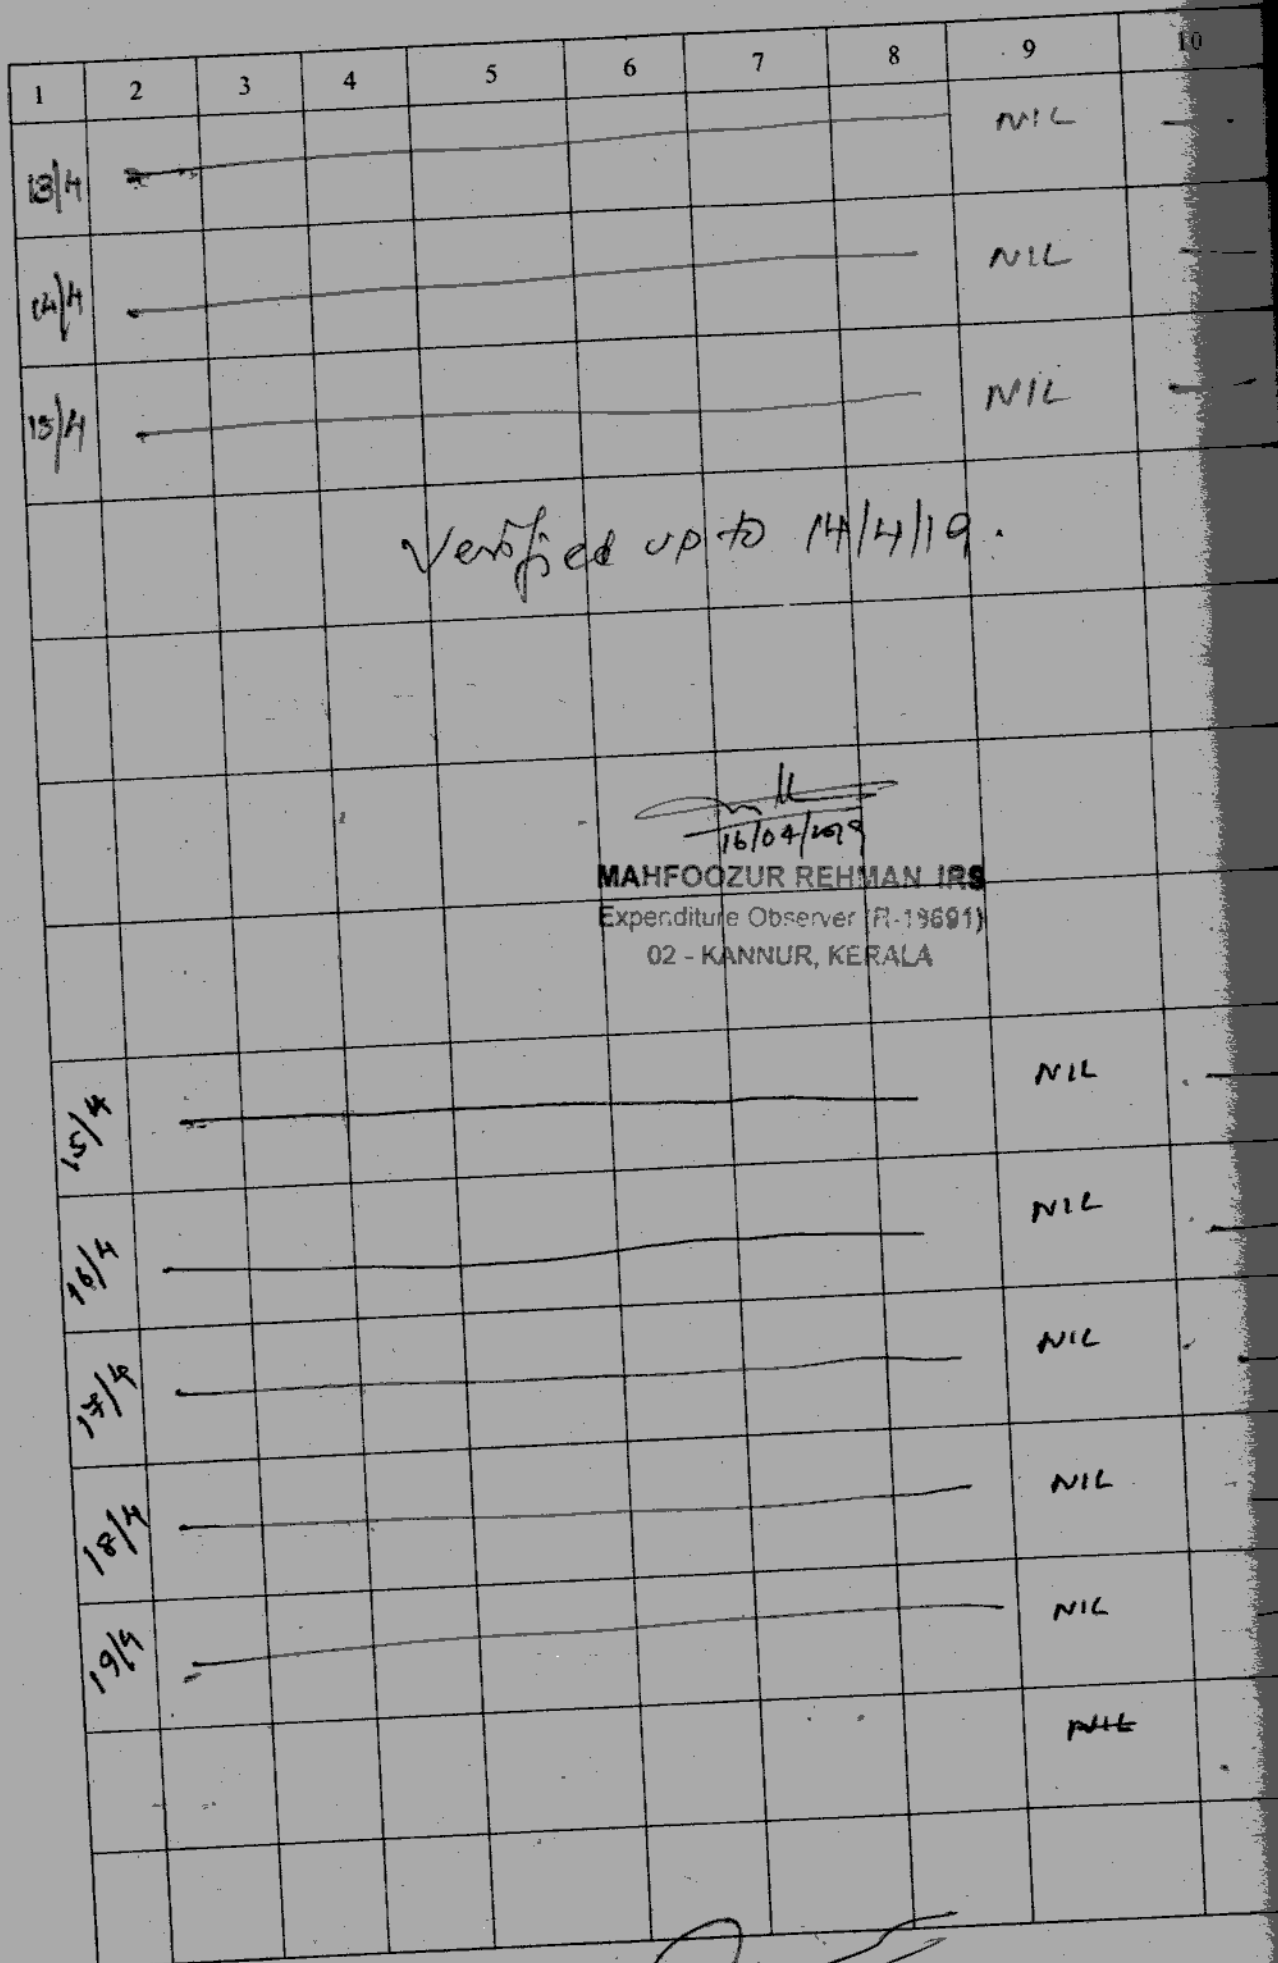 1 2 3 4 5 6 7 8 9 10
13/4 NIL
14/4 NIL
15/4 NIL
Verified up to 14/4/19.
16/04/2019
MAHFOOZUR REHMAN IRS
Expenditure Observer (R-19691)
02 - KANNUR, KERALA
15/4 NIL
16/4 NIL
17/4 NIL
18/4 NIL
19/4 NIL
NIL